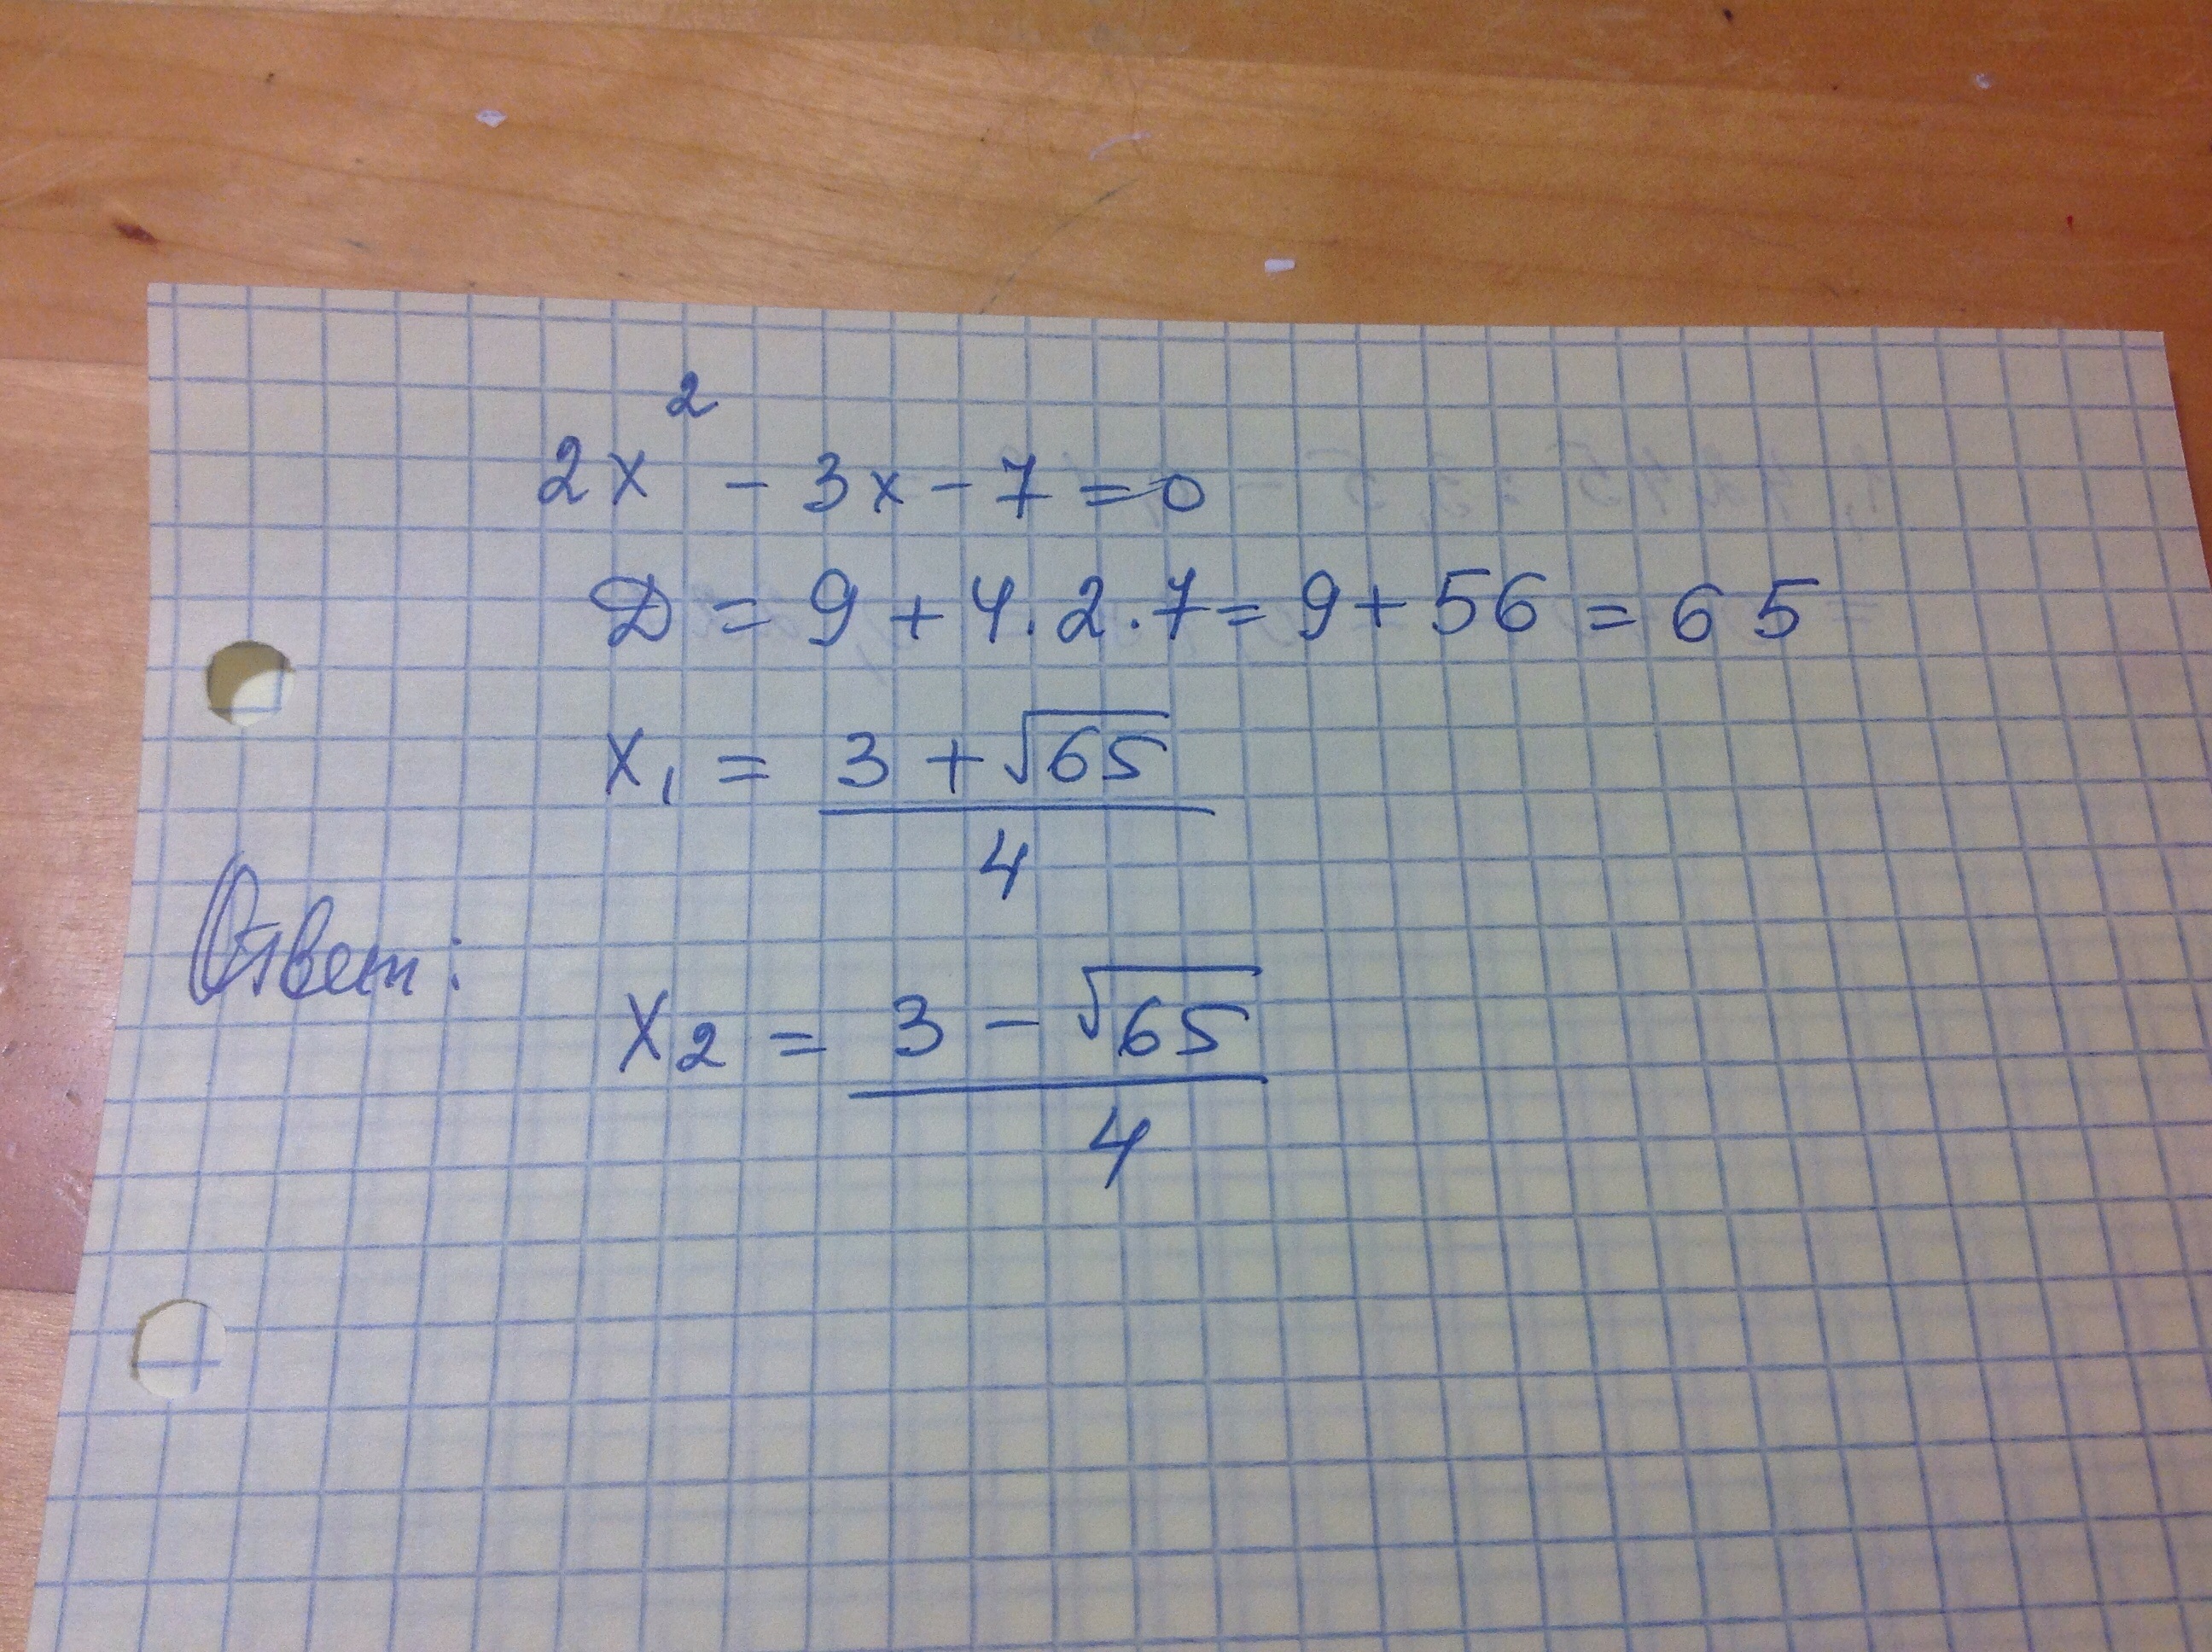 2x² - 3x - 7 = 0
D = 9 + 4 · 2 · 7 = 9 + 56 = 65
x₁ = (3 + √65) / 4
Ответ:
x₂ = (3 - √65) / 4